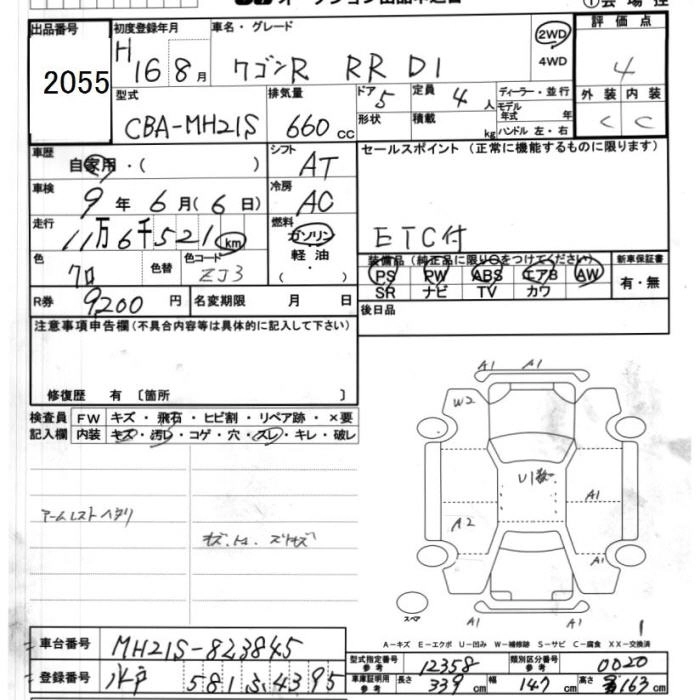 出品番号
2055
初度登録年月
H 16 8月
車名・グレード
ワゴンR RR DI
2WD
4WD
評価点
4
外装 内装
C C
型式
CBA-MH21S
排気量
660 cc
ドア 5
定員 4 人
形状
積載 kg
ディーラー・並行
モデル年式 年
ハンドル 左・右
車歴
自家用・( )
シフト
AT
セールスポイント(正常に機能するものに限ります)
ETC付
車検
9年 6月(6日)
冷房
AC
走行
11万6千521 km
燃料
ガソリン
軽油
・
( )
色
クロ
色替
色コード
ZJ3
装備品(純正品に限り○をつけてください)
PS PW ABS エアB AW
SR ナビ TV カワ
新車保証書
有・無
R券 9,200 円
名変期限 月 日
後日品
注意事項申告欄(不具合内容等は具体的に記入して下さい)
修復歴 有〔箇所 〕
検査員記入欄
FW キズ・飛石・ヒビ割・リペア跡・×要
内装 キズ・汚レ・コゲ・穴・スレ・キレ・破レ
アームレストヘタリ
A1 A1
W2
U1数
A1
A2
A1
A1 A1
スペア
1
A-キズ E-エクボ U-凹み W-補修跡 S-サビ C-腐食 XX-交換済
車台番号 MH21S-823845
登録番号 水戸 581 ふ 4395
型式指定番号 参考 12358
類別区分番号 参考 0020
車庫証明用 参考 長さ 339 cm 幅 147 cm 高さ 163 cm